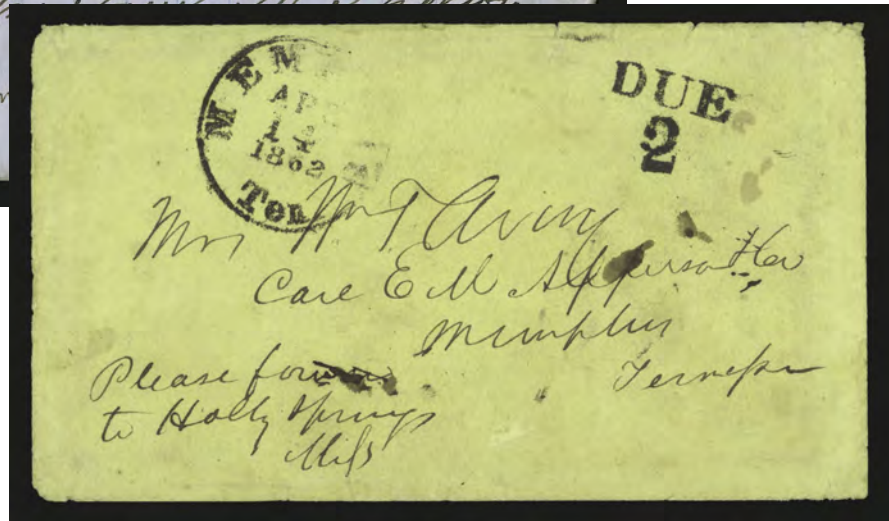 MEM
AP
14
1862
Ten
DUE
2
Mrs Wm T Avery
Care E M Apperson & Co
Memphis
Tennessee
Please forward
to Holly Springs
Miss